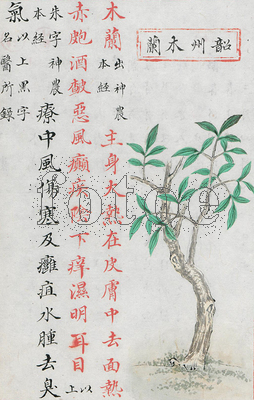 韶州木蘭
木蘭出神農本經主身大熱在皮膚中去面熱
赤皰酒皶惡風癲疾陰下痒濕明耳目以上
朱字神農本經療中風傷寒及癰疽水腫去臭
氣以上黑字名醫所錄